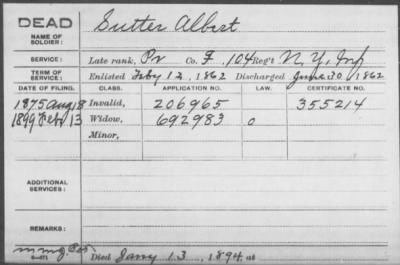 DEAD Sutter Albert
NAME OF SOLDIER:
SERVICE: Late rank, Pr Co. F, 104 Reg't N. Y. Inf
TERM OF SERVICE: Enlisted Feby 12, 1862 Discharged June 30, 1862
DATE OF FILING. CLASS. APPLICATION NO. LAW. CERTIFICATE NO.
1875 Aug 18 Invalid, 206965 355214
1899 Feb 13 Widow, 692983 0
Minor,
ADDITIONAL SERVICES:
REMARKS:
Died Jany 13, 1894, at